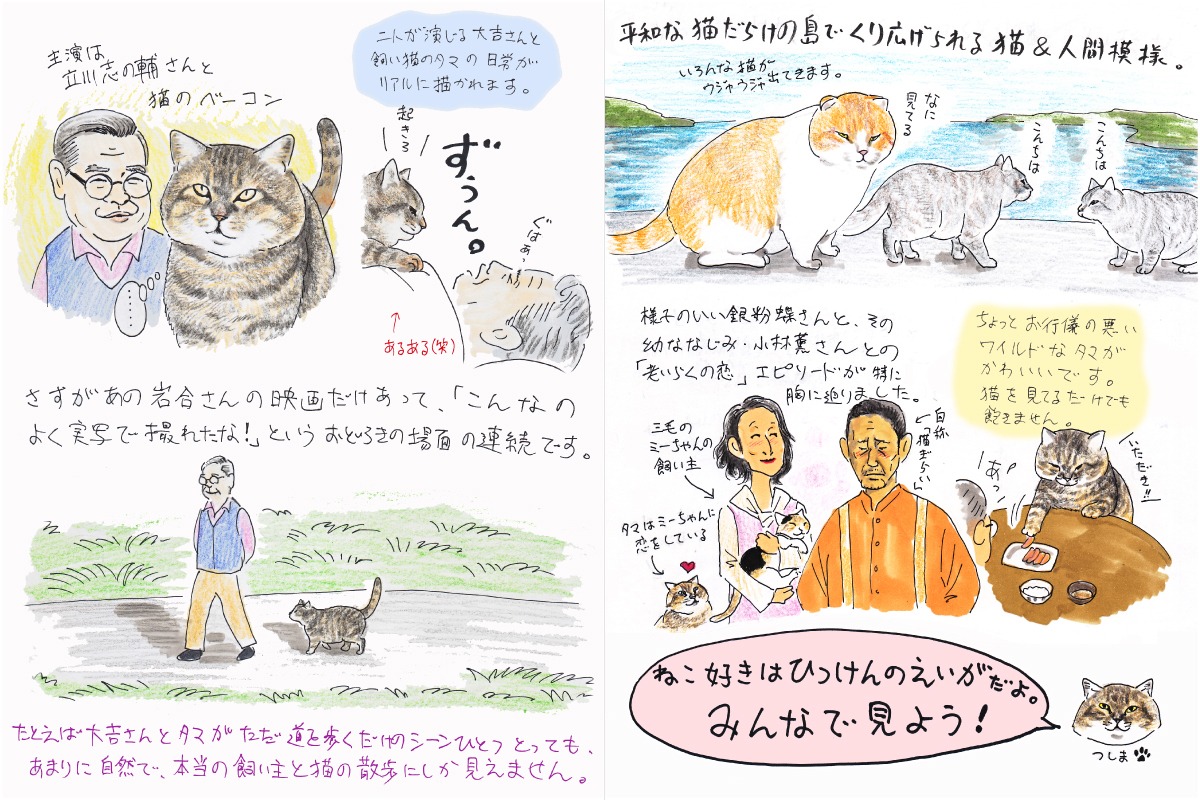 主演は
立川志の輔さんと
猫のベーコン
二人が演じる大吉さんと
飼い猫のタマの日常が
リアルに描かれます。
起きろ
ずぅん。
ぐはぁっ
↑
あるある(笑)
さすがあの岩合さんの映画だけあって、「こんなの
よく実写で撮れたな!」というおどろきの場面の連続です。
たとえば大吉さんとタマがただ道を歩くだけのシーンひとつとっても、
あまりに自然で、本当の飼い主と猫の散歩にしか見えません。
平和な猫だらけの島でくり広げられる猫&人間模様。
いろんな猫が
ウジャウジャ出てきます。
なに
見てる
こんちは
こんちは
様子のいい銀粉蝶さんと、その
幼ななじみ・小林薫さんとの
「老いらくの恋」エピソードが特に
胸に迫りました。
ちょっとお行儀の悪い
ワイルドなタマが
かわいいです。
猫を見てるだけでも
飽きません。
三毛の
ミーちゃんの
飼い主
自称
「猫ぎらい」
タマはミーちゃんに
恋をしている
あっ
いただき!!
ねこ好きはひっけんのえいがだよ。
みんなで見よう!
つしま